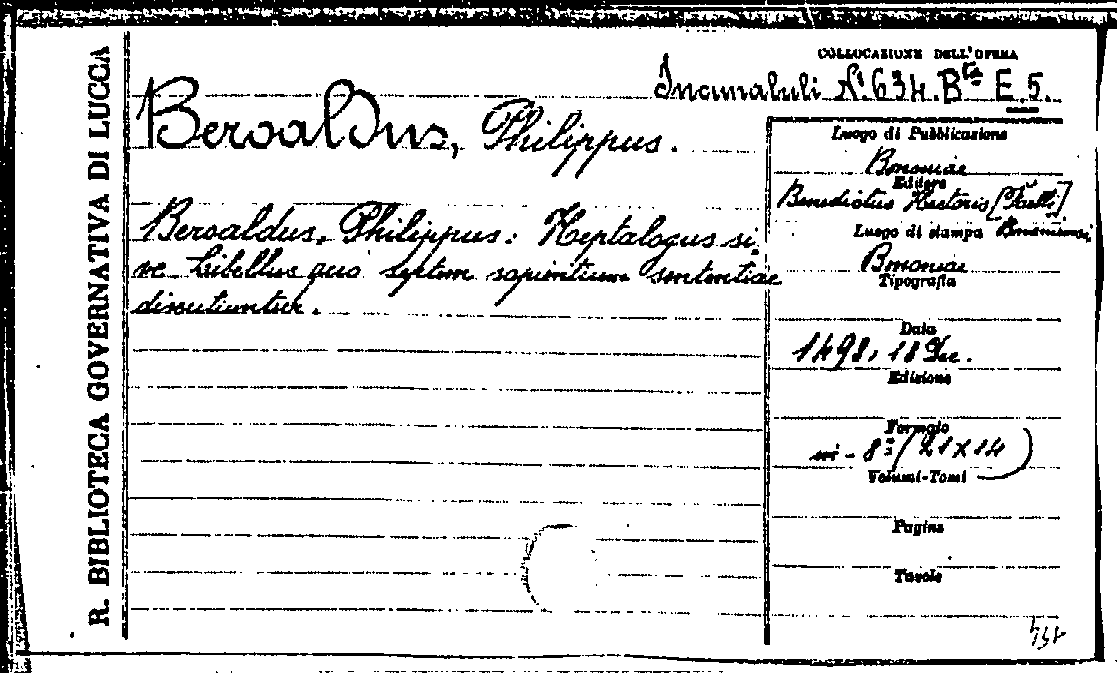 R. BIBLIOTECA GOVERNATIVA DI LUCCA
COLLOCAZIONE DELL'OPERA
Incunabuli N. 634. B.ta E. 5.
Beroaldus, Philippus.
Beroaldus, Philippus: Heptalogus si-
ve Libellus quo septem sapientium sententiae
discutiuntur.
Luogo di Pubblicazione
Bononiae
Editore
Benedictus Hectoris [Faelli]
Luogo di stampa Bononiensi
Bononiae
Tipografia
Data
1498, 18 Dec.
Edizione
Formato
in-8º (21x14)
Volumi-Tomi
Pagine
Tavole